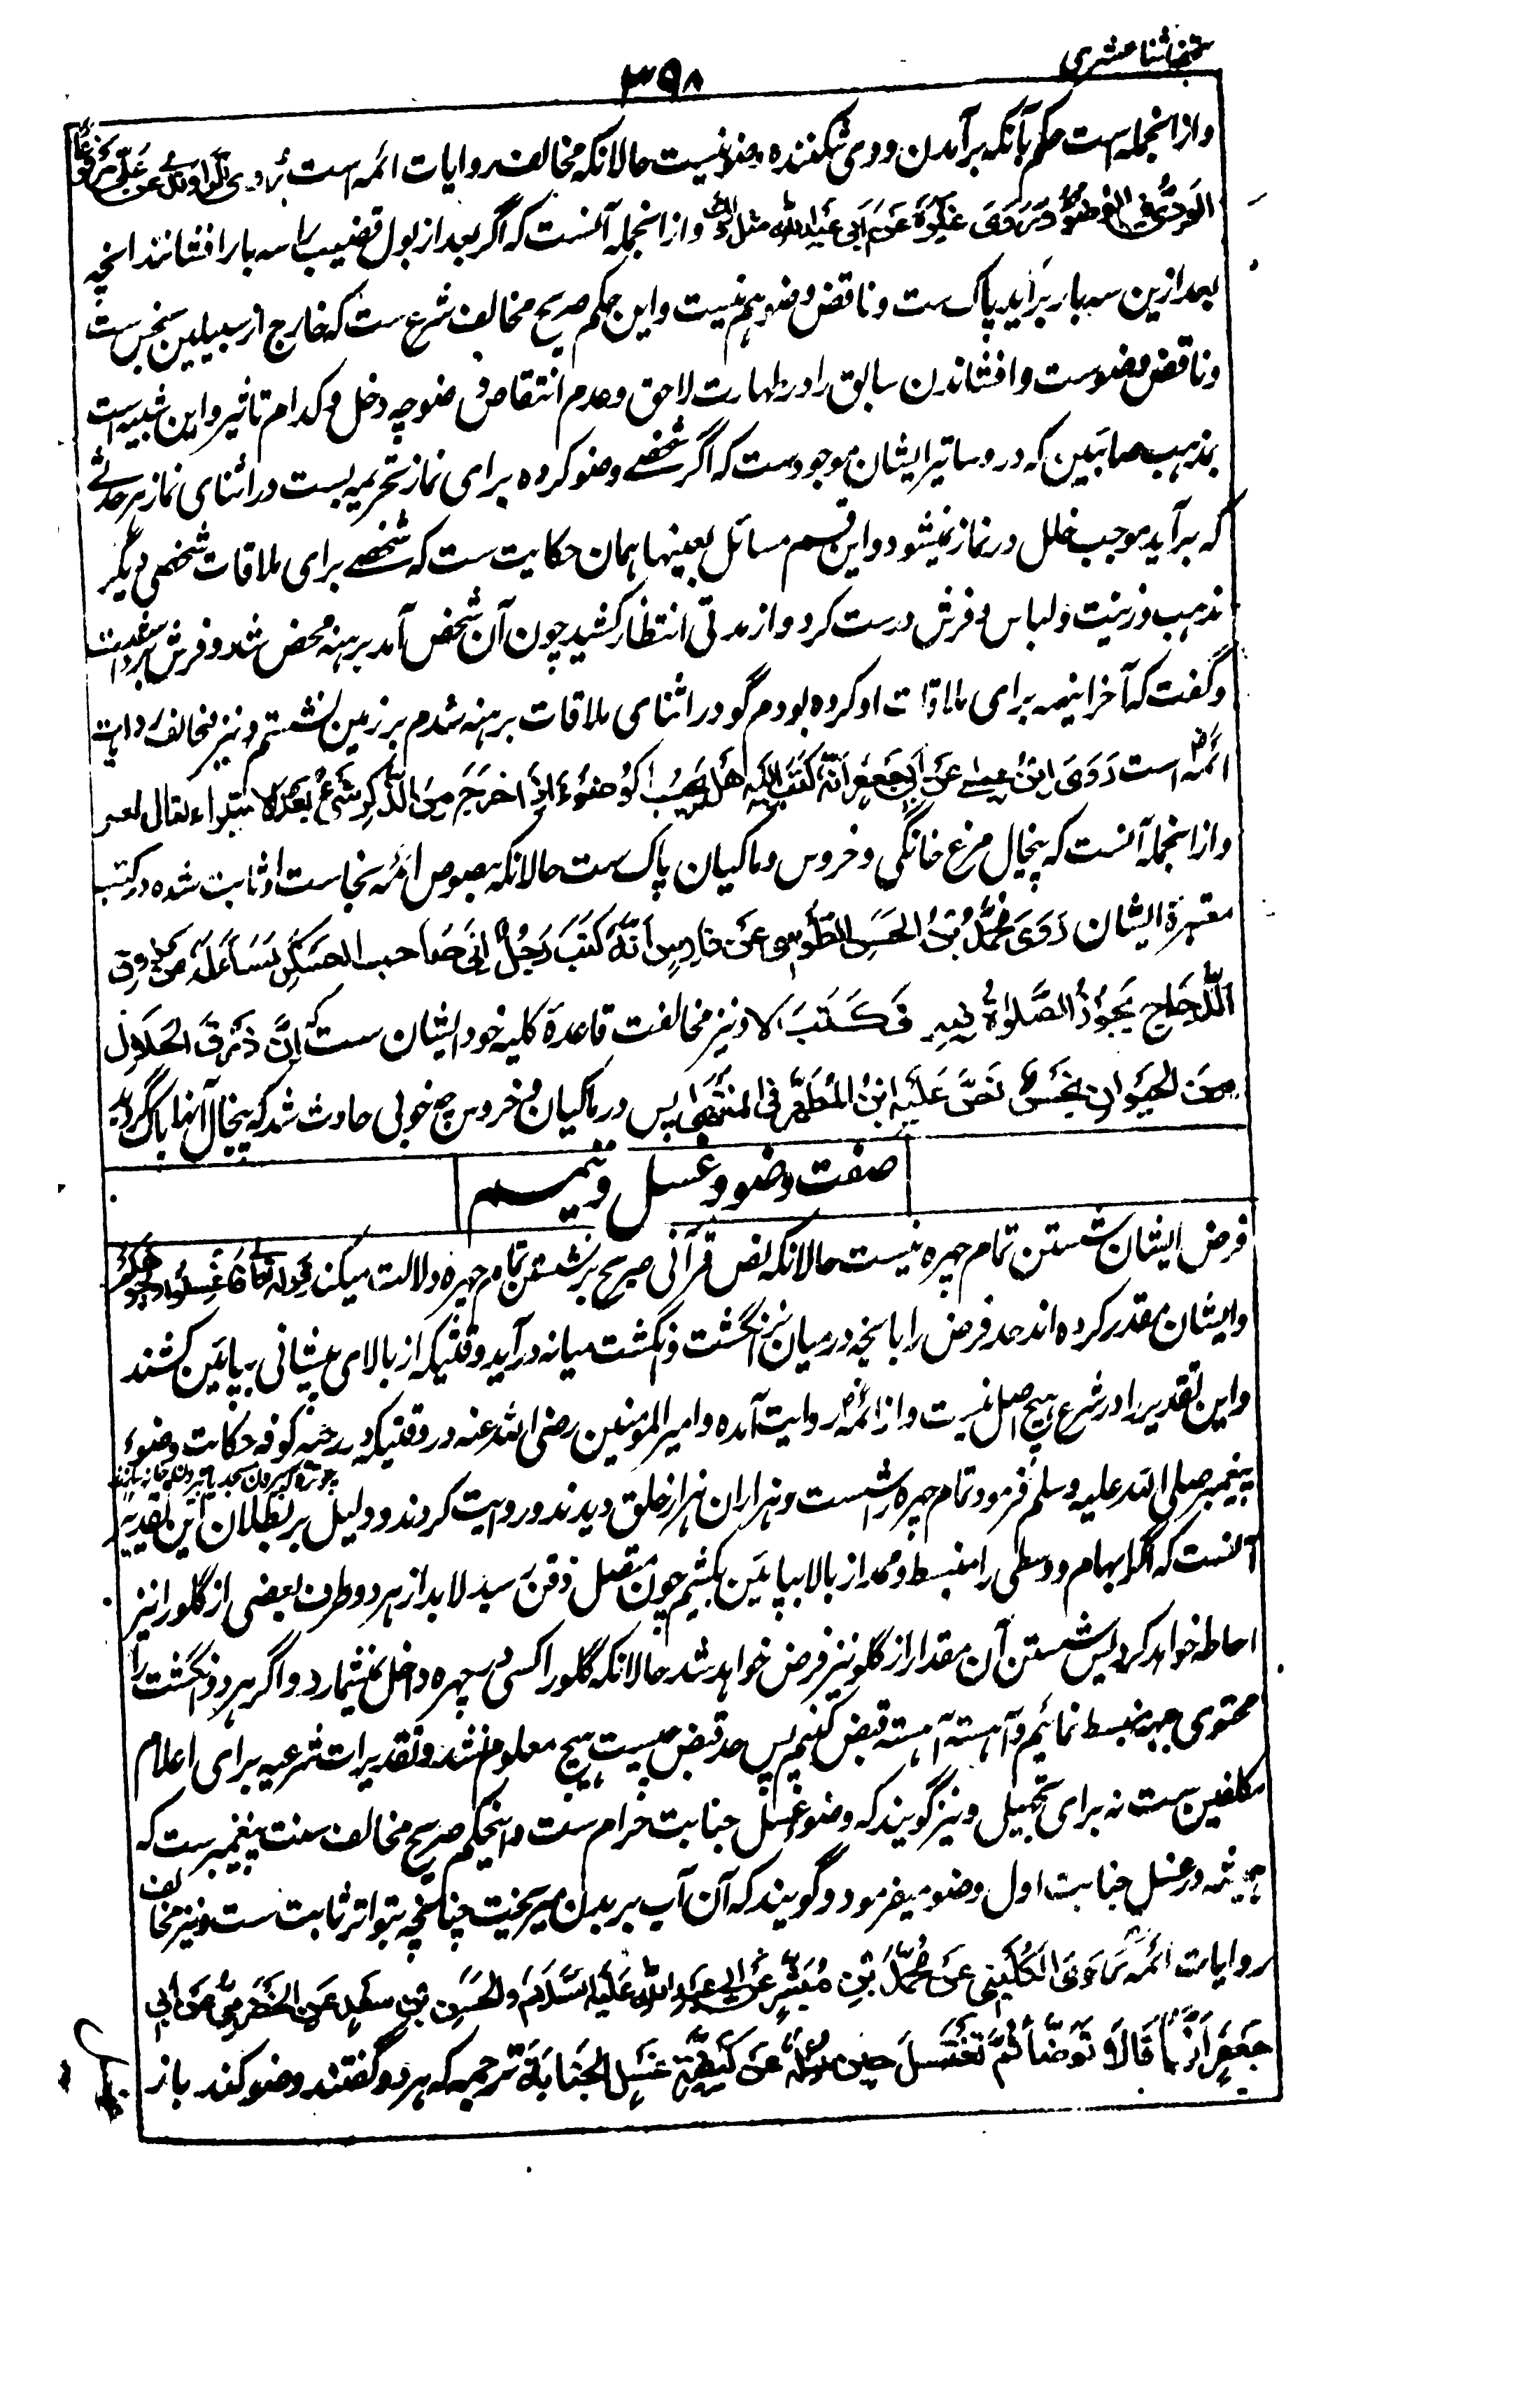 تحفه اثنا عشری
۳۹۸
و از انجمله است حکم بآنکه برآمدن ودی شکننده وضو نیست حالانکه مخالف روایات ائمه است رَوی الراوندی عن علی مرفوعا
الوَدیُ فیه الوضوءُ وَ رَوَی غیرُهُ عَن اَبی عبدالله مثل ذلک و از انجمله آنست که اگر بعد از بول قضیب را سه بار افشانند انچه
بعد ازین سه بار برآید پاک ست و ناقض وضو هم نیست و این حکم صریح مخالف شرع ست که خارج از سبیلین نجس ست
و ناقض وضوست و افشاندن سابق را در طهارت لاحق و عدم انتقاض وضو چه دخل و کدام تاثیر و این شبیه است
بمذهب صابئین که در دساتیر ایشان موجودست که اگر شخصے وضو کرده برای نماز تحریمه بست در اثنای نماز هر حدثے
که برآید موجب خلل در نماز نمیشود و این قسم مسائل بعینها همان حکایت ست که شخصے برای ملاقات شخصی دیگر
تذهب و زینت و لباس و فرش درست کرد و از مدتی انتظار کشید چون آن شخص آمد برهنه محض شد و فرش برداشت
و گفت که آخر اینهمه برای ملاقات او کرده بودم گو در اثنای ملاقات برهنه شدم بر زمین نشستم و نیز مخالف روایات
ائمه است رَوَی ابنُ عیسے عَن اَبی جَعفر اَنَّهُ کَتَبَ اِلَیهِ هَل یَجِبُ الوُضوءُ اِذا خَرَجَ مِنَ الذَّکَرِ شَیءٌ بَعدَ الاستبراء فقال نعم
و از انجمله آنست که پیخال مرغ خانگی و خروس و ماکیان پاک ست حالانکه بنصوص ائمه نجاست او ثابت شده در کتب
معتبره ایشان رَوَی مُحَمَّدُ بنُ الحَسَنِ الطُّوسِی عَن فارِس اَنَّهُ کَتَبَ رَجُلٌ اِلی صاحب العسکر یَسأَلُهُ عن ذرق
الدَّجاجِ یَجُوزُ الصَّلوٰةُ فِیهِ فَکَتَبَ لا و نیز مخالفت قاعدهٔ کلیه خود ایشان ست که اِنَّ ذَرقَ الحَلالِ
مِنَ الحَیَوانِ نَجِسٌ نَصَّ عَلَیهِ ابنُ المُطَهَّر فی المنتهی پس در ماکیان و خروس چه خوبی حادث شد که پیخال آنها پاک گردید
صفت وضو و غسل و تیمم
فرض ایشان شستن تمام چهره نیست حالانکه نص قرآنی صریح بر شستن تمام چهره دلالت میکند قوله تعالے فَاغسِلُوا وُجُوهَکُم
و ایشان مقدر کرده اند حد فرض را بانچه در میان نر انگشت و انگشت میانه درآید وقتیکه از بالای پیشانی بپائین کشند
و این تقدیر را در شرع هیچ اصل نیست و از ائمه روایت آمده و امیر المومنین رضی الله عنه در وقتیکه در رحبه کوفه حکایت وضوء
پیغمبر صلی الله علیه وسلم فرمود تمام چهره را شست و هزاران هزار خلق دیدند و روایت کردند و دلیل بر بطلان این تقدیر
آنست که اگر ابهام و وسطی را منبسط و ممتد از بالا بپائین بکشیم چون متصل ذقن رسید لابد از هر دو طرف بعضی از گلو را نیز
احاطه خواهد کرد پس شستن آن مقدار از گلو نیز فرض خواهد شد حالانکه گلو را کسی در چهره داخل نمیشمارد و اگر هر دو انگشت را
محتوی جبهه منبسط نمائیم و آهسته آهسته قبض کنیم پس حد قبض چیست هیچ معلوم نشد و تقدیرات شرعیه برای اعلام
مکلفین ست نه برای تجهیل و نیز گویند که وضو در غسل جنابت حرام ست و اینحکم صریح مخالف سنت پیغمبرست که
همیشه در غسل جنابت اول وضو میفرمود و گویند که آن آب بر بدن میریخت چنانچه بتواتر ثابت ست و نیز مخالف
روایات ائمه رَوَی الکُلَینِی عَن مُحَمَّد بنِ مُیَسِّر عَن ابی عبدالله عَلَیهِ السَّلام وَ الحَسَن بنِ سعید عَنِ الحَضرَمِی عن ابی
جَعفَر اَنَّهُما قالا تَوَضَّأ ثُمَّ تَغتَسِلَ حینَ سُئِلَ عَن کَیفِیَّةِ غُسلِ الجَنابَةِ ترجمه که هر دو گفتند وضو کند باز